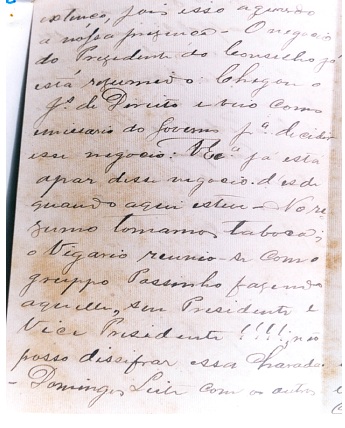 pois isso aguardo
a nossa presença - O negocio
do Presidente do Conselho já
está resumido: Chegou o
Jº. de Direito e veio como
emissario do Governo pª. decidir
esse negocio: VExª. ja está
apar desse negocio desde
quando aqui esteve - No re
zumo tomamos taboca;
o Vigario reunio-se com o
gruppo Passinho fazendo
aquelle, seu Presidente e
Vice Presidente!!!!; não
posso dissifrar essa charada
- Domingos Leite com os outros